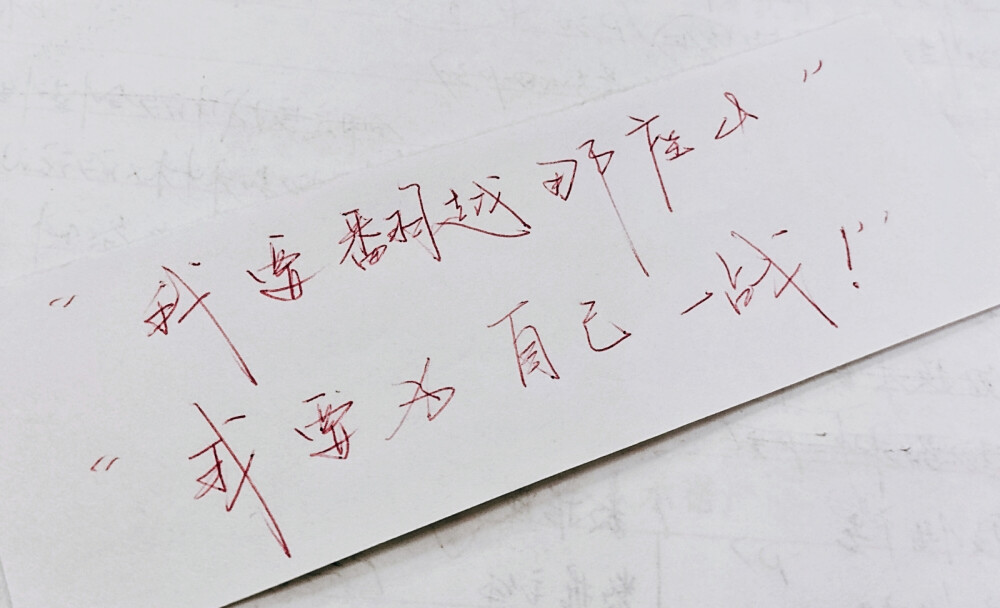 “我要翻越那座山”
“我要为自己一战！”